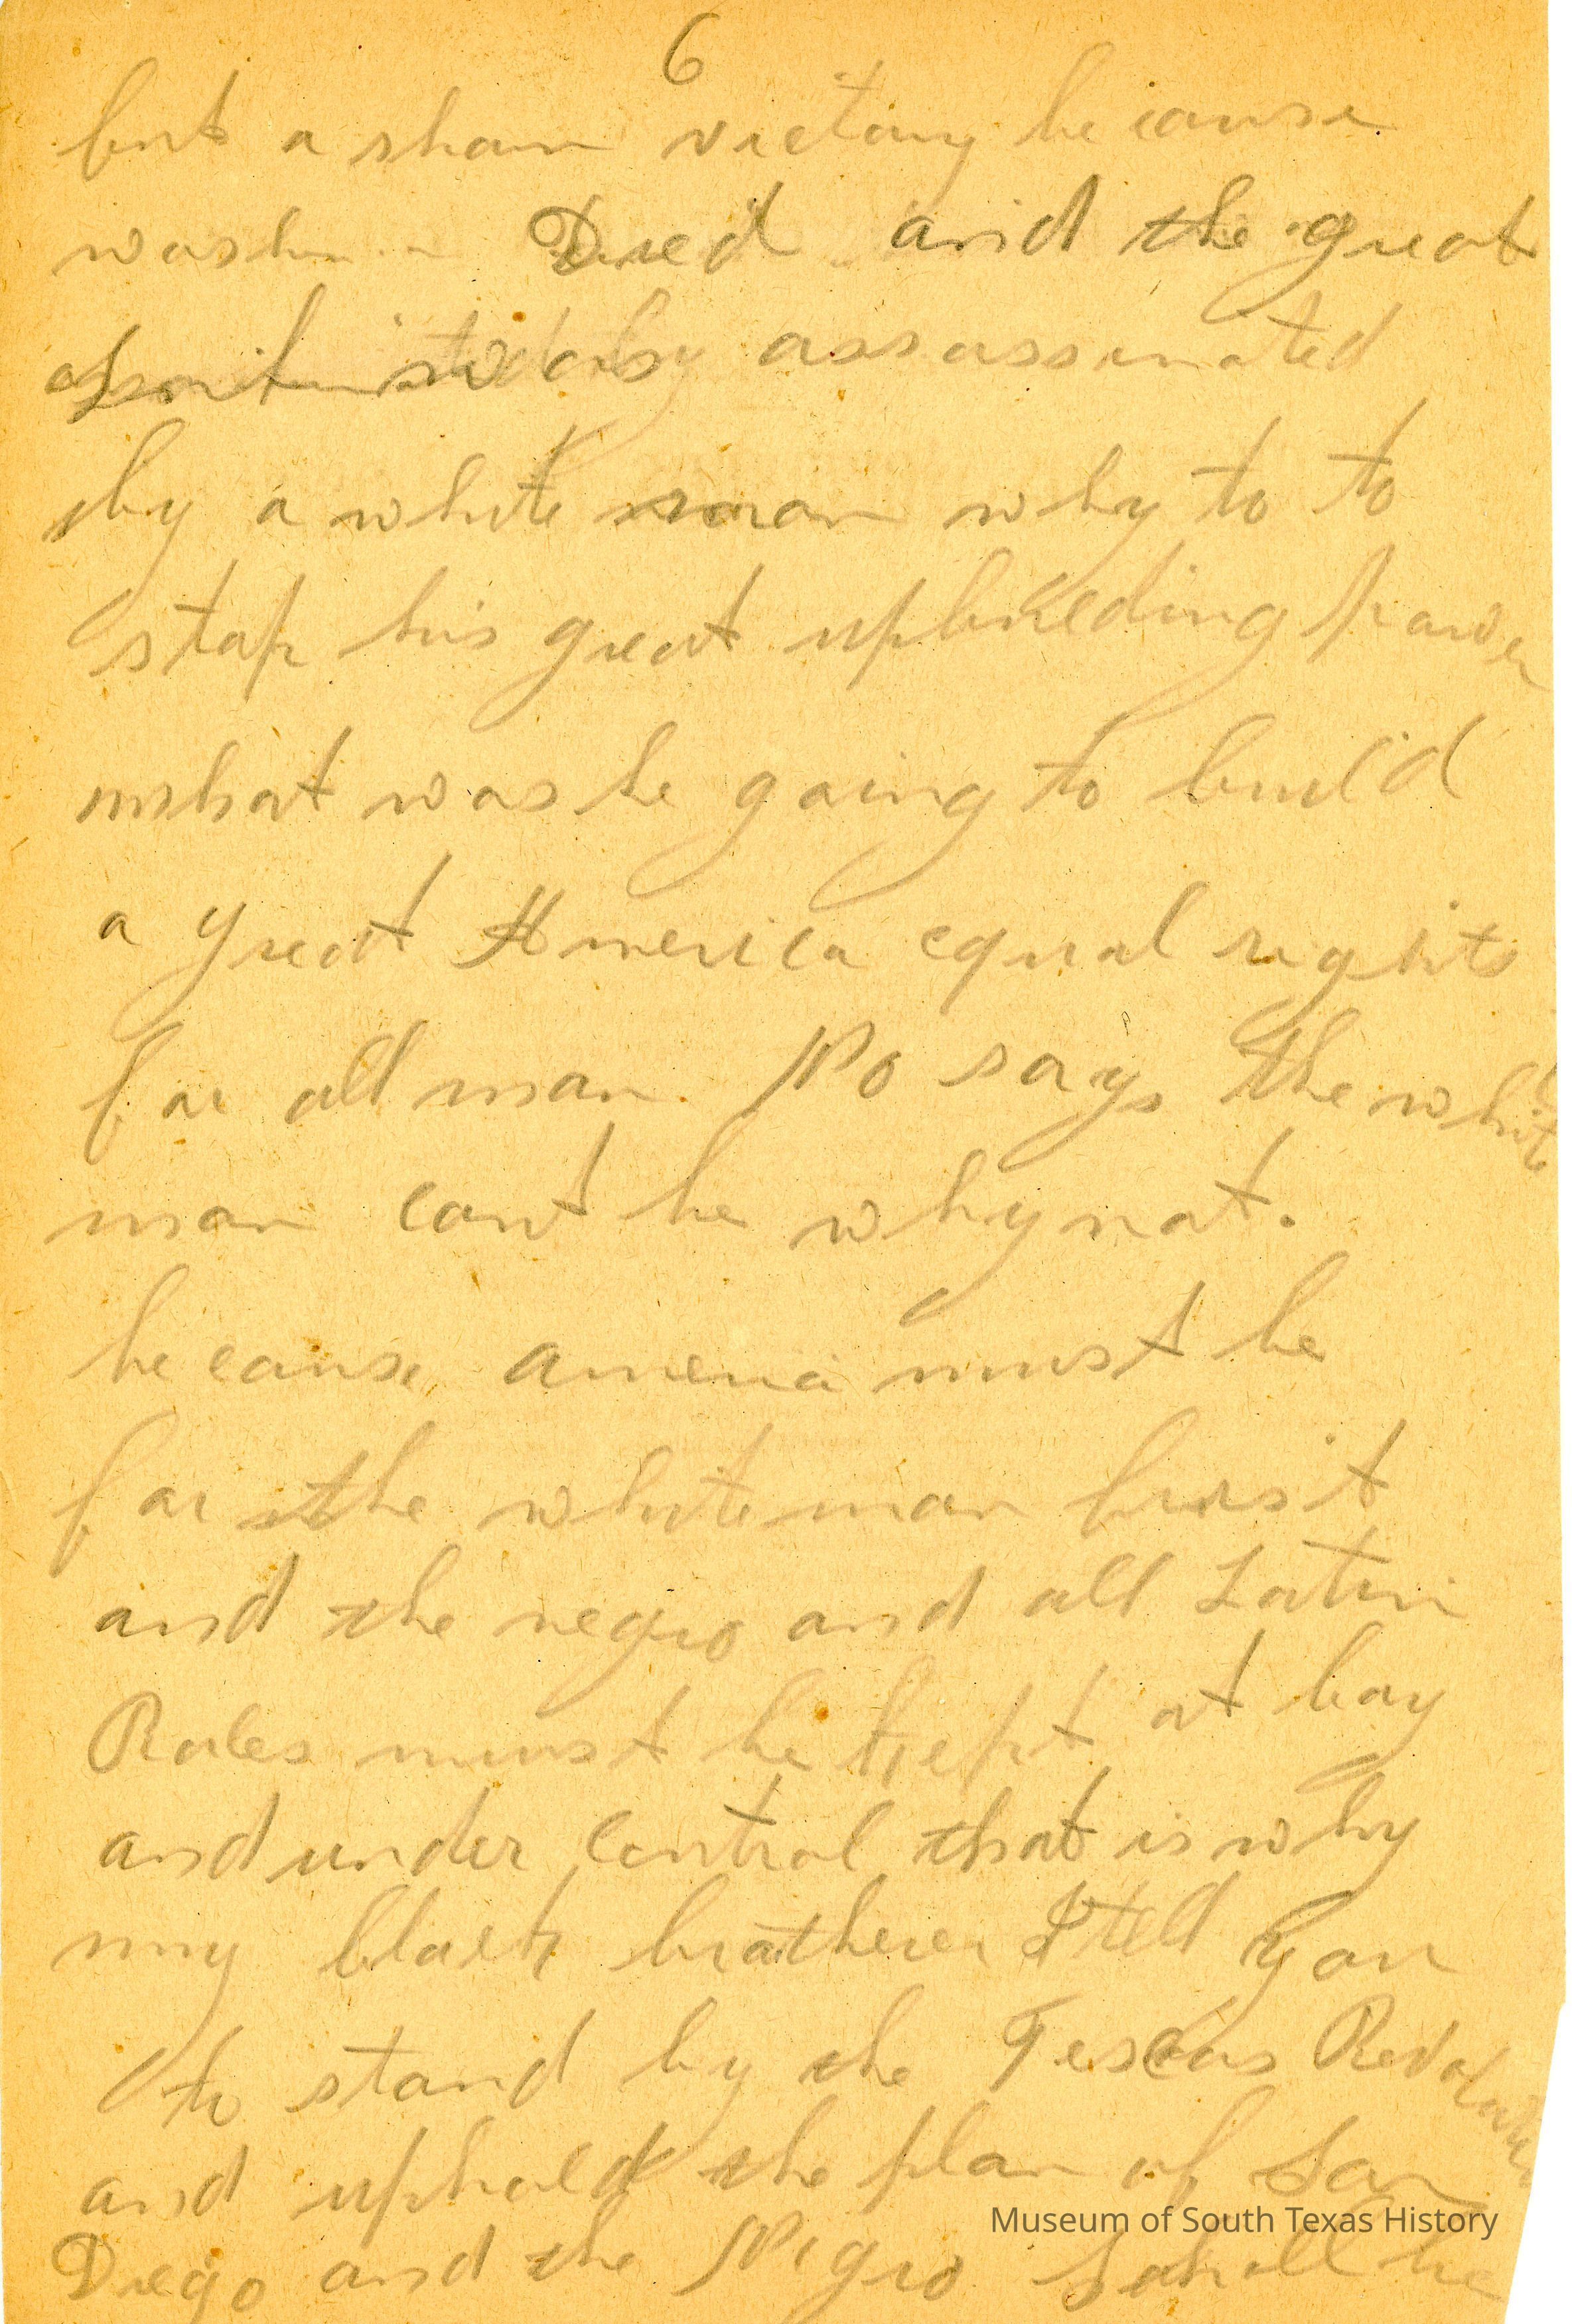 6
but a sham victory because
Died and the great
assassinated
by a white man why to to
stop his great upbuilding power
what was he going to build
a great America equal rights
for all man. No says the white
man cant be why not.
because ameria must be
for the white man first
and the negro and all Latin
Rales must be kept at bay
and under control that is why
my black brotheren I tell you
to stand by the Texas Revolution
and uphold the plan of San
Diego and the Nigro Sahall be
Museum of South Texas History